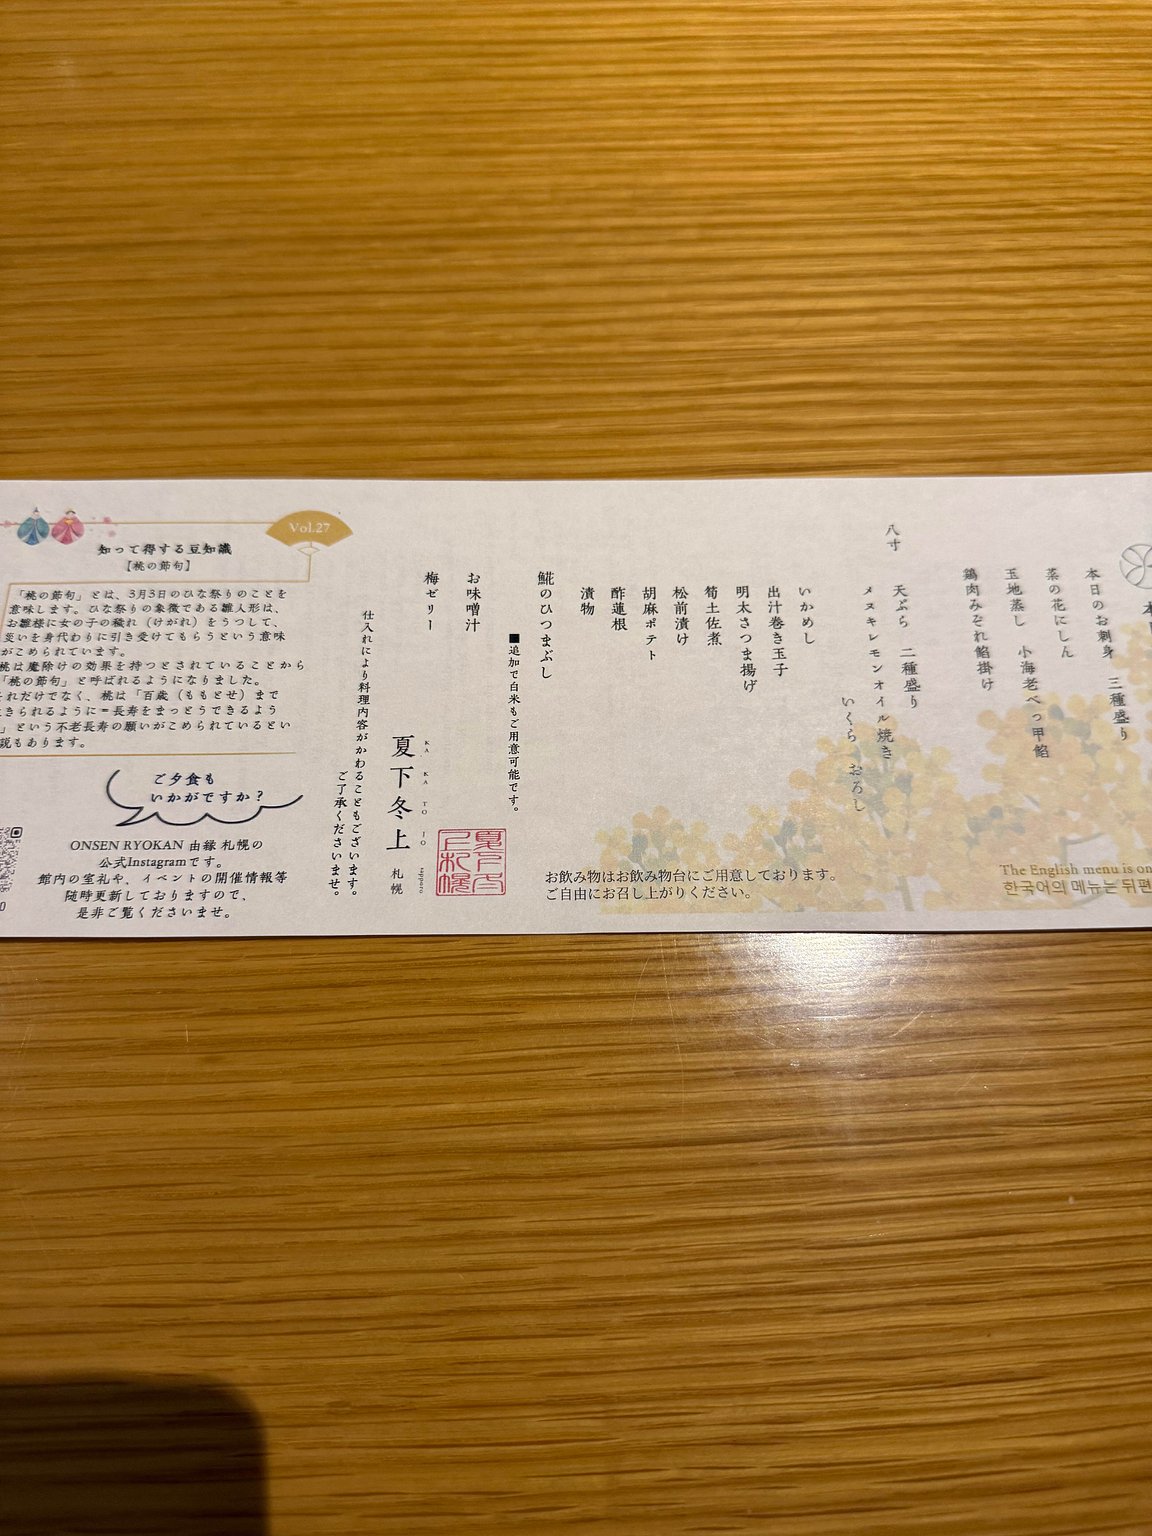 本日のお刺身 三種盛り
菜の花にしん
玉地蒸し 小海老べっ甲餡
鶏肉みぞれ餡掛け
八寸
天ぷら 二種盛り
メヌキレモンオイル焼き
いくら おろし
いかめし
出汁巻き玉子
明太さつま揚げ
筍土佐煮
松前漬け
胡麻ポテト
酢蓮根
漬物
鰊のひつまぶし
■追加で白米もご用意可能です。
お味噌汁
梅ゼリー
お飲み物はお飲み物台にご用意しております。
ご自由にお召し上がりください。
The English menu is on
한국어의 메뉴는 뒤편
KA KA TO JO sapporo
夏下冬上 札幌
夏下冬上札幌
仕入れにより料理内容がかわることもございます。
ご了承くださいませ。
Vol.27
知って得する豆知識
【桃の節句】
「桃の節句」とは、3月3日のひな祭りのことを
意味します。ひな祭りの象徴である雛人形は、
お雛様に女の子の穢れ（けがれ）をうつして、
災いを身代わりに引き受けてもらうという意味
がこめられています。
桃は魔除けの効果を持つとされていることから
「桃の節句」と呼ばれるようになりました。
それだけでなく、桃は「百歳（ももとせ）まで
生きられるように＝長寿をまっとうできるよう
」という不老長寿の願いがこめられているとい
説もあります。
ご夕食も
いかがですか？
ONSEN RYOKAN 由縁 札幌の
公式Instagramです。
館内の室礼や、イベントの開催情報等
随時更新しておりますので、
是非ご覧くださいませ。